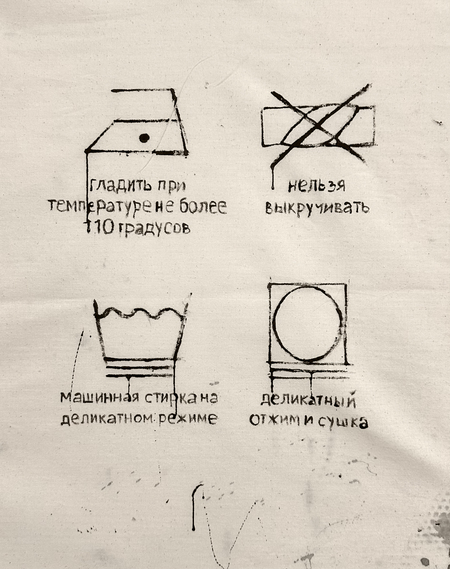 гладить при
температуре не более
110 градусов
нельзя
выкручивать
машинная стирка на
деликатном режиме
деликатный
отжим и сушка